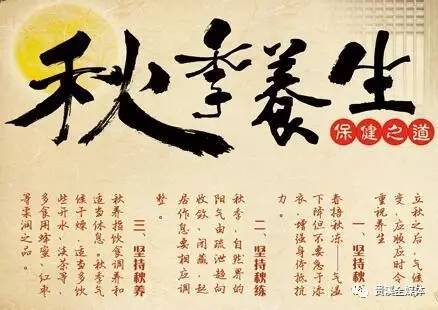 秋季養生
保健之道
立秋之后，气候
变，应顺应时令
重视养生
一、坚持秋冻
春捂秋冻——气温
下降但不要急于添
衣，增强身体抵抗
力。
二、坚持秋练
秋季，自然界的
阳气由疏泄趋向
收敛、闭藏，起
居作息要相应调
整。
三、坚持秋养
秋养指饮食调养和
适当休息。秋季气
候干燥，适当多饮
些开水、淡茶等，
多食用蜂蜜、红枣
等柔润之品。
贵溪全媒体